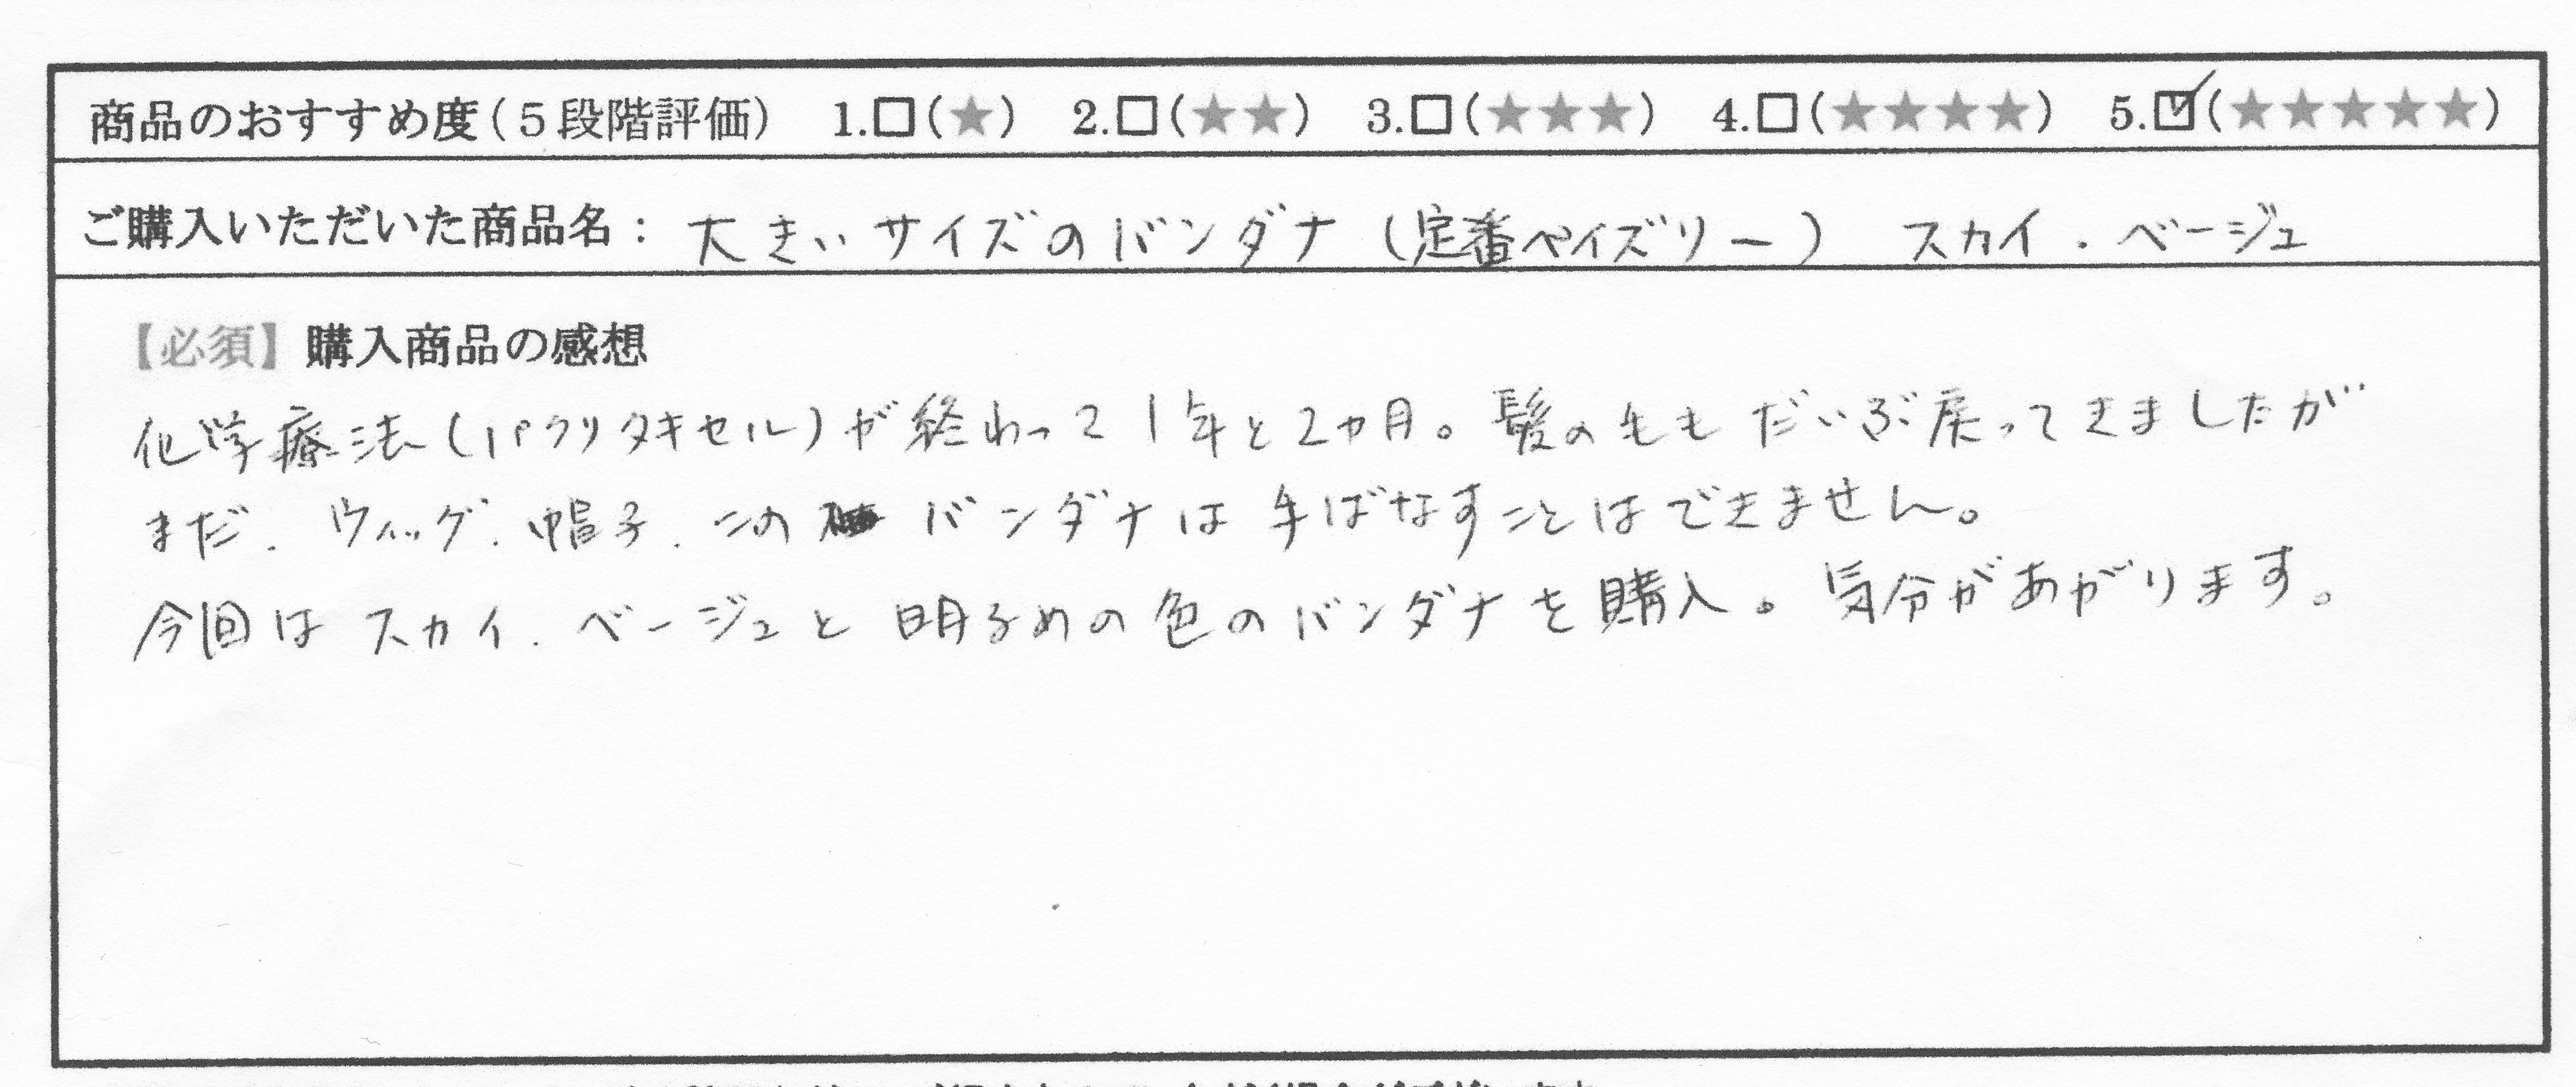 商品のおすすめ度(5段階評価) 1.□(★) 2.□(★★) 3.□(★★★) 4.□(★★★★) 5.☑(★★★★★)
ご購入いただいた商品名: 大きいサイズのバンダナ (定番ペイズリー) スカイ・ベージュ
【必須】購入商品の感想
化学療法(パクリタキセル)が終わって1年と2カ月。髪の毛もだいぶ戻ってきましたが
まだ、ウィッグ、帽子、このバンダナは手ばなすことはできません。
今回はスカイ、ベージュと明るめの色のバンダナを購入。気分があがります。